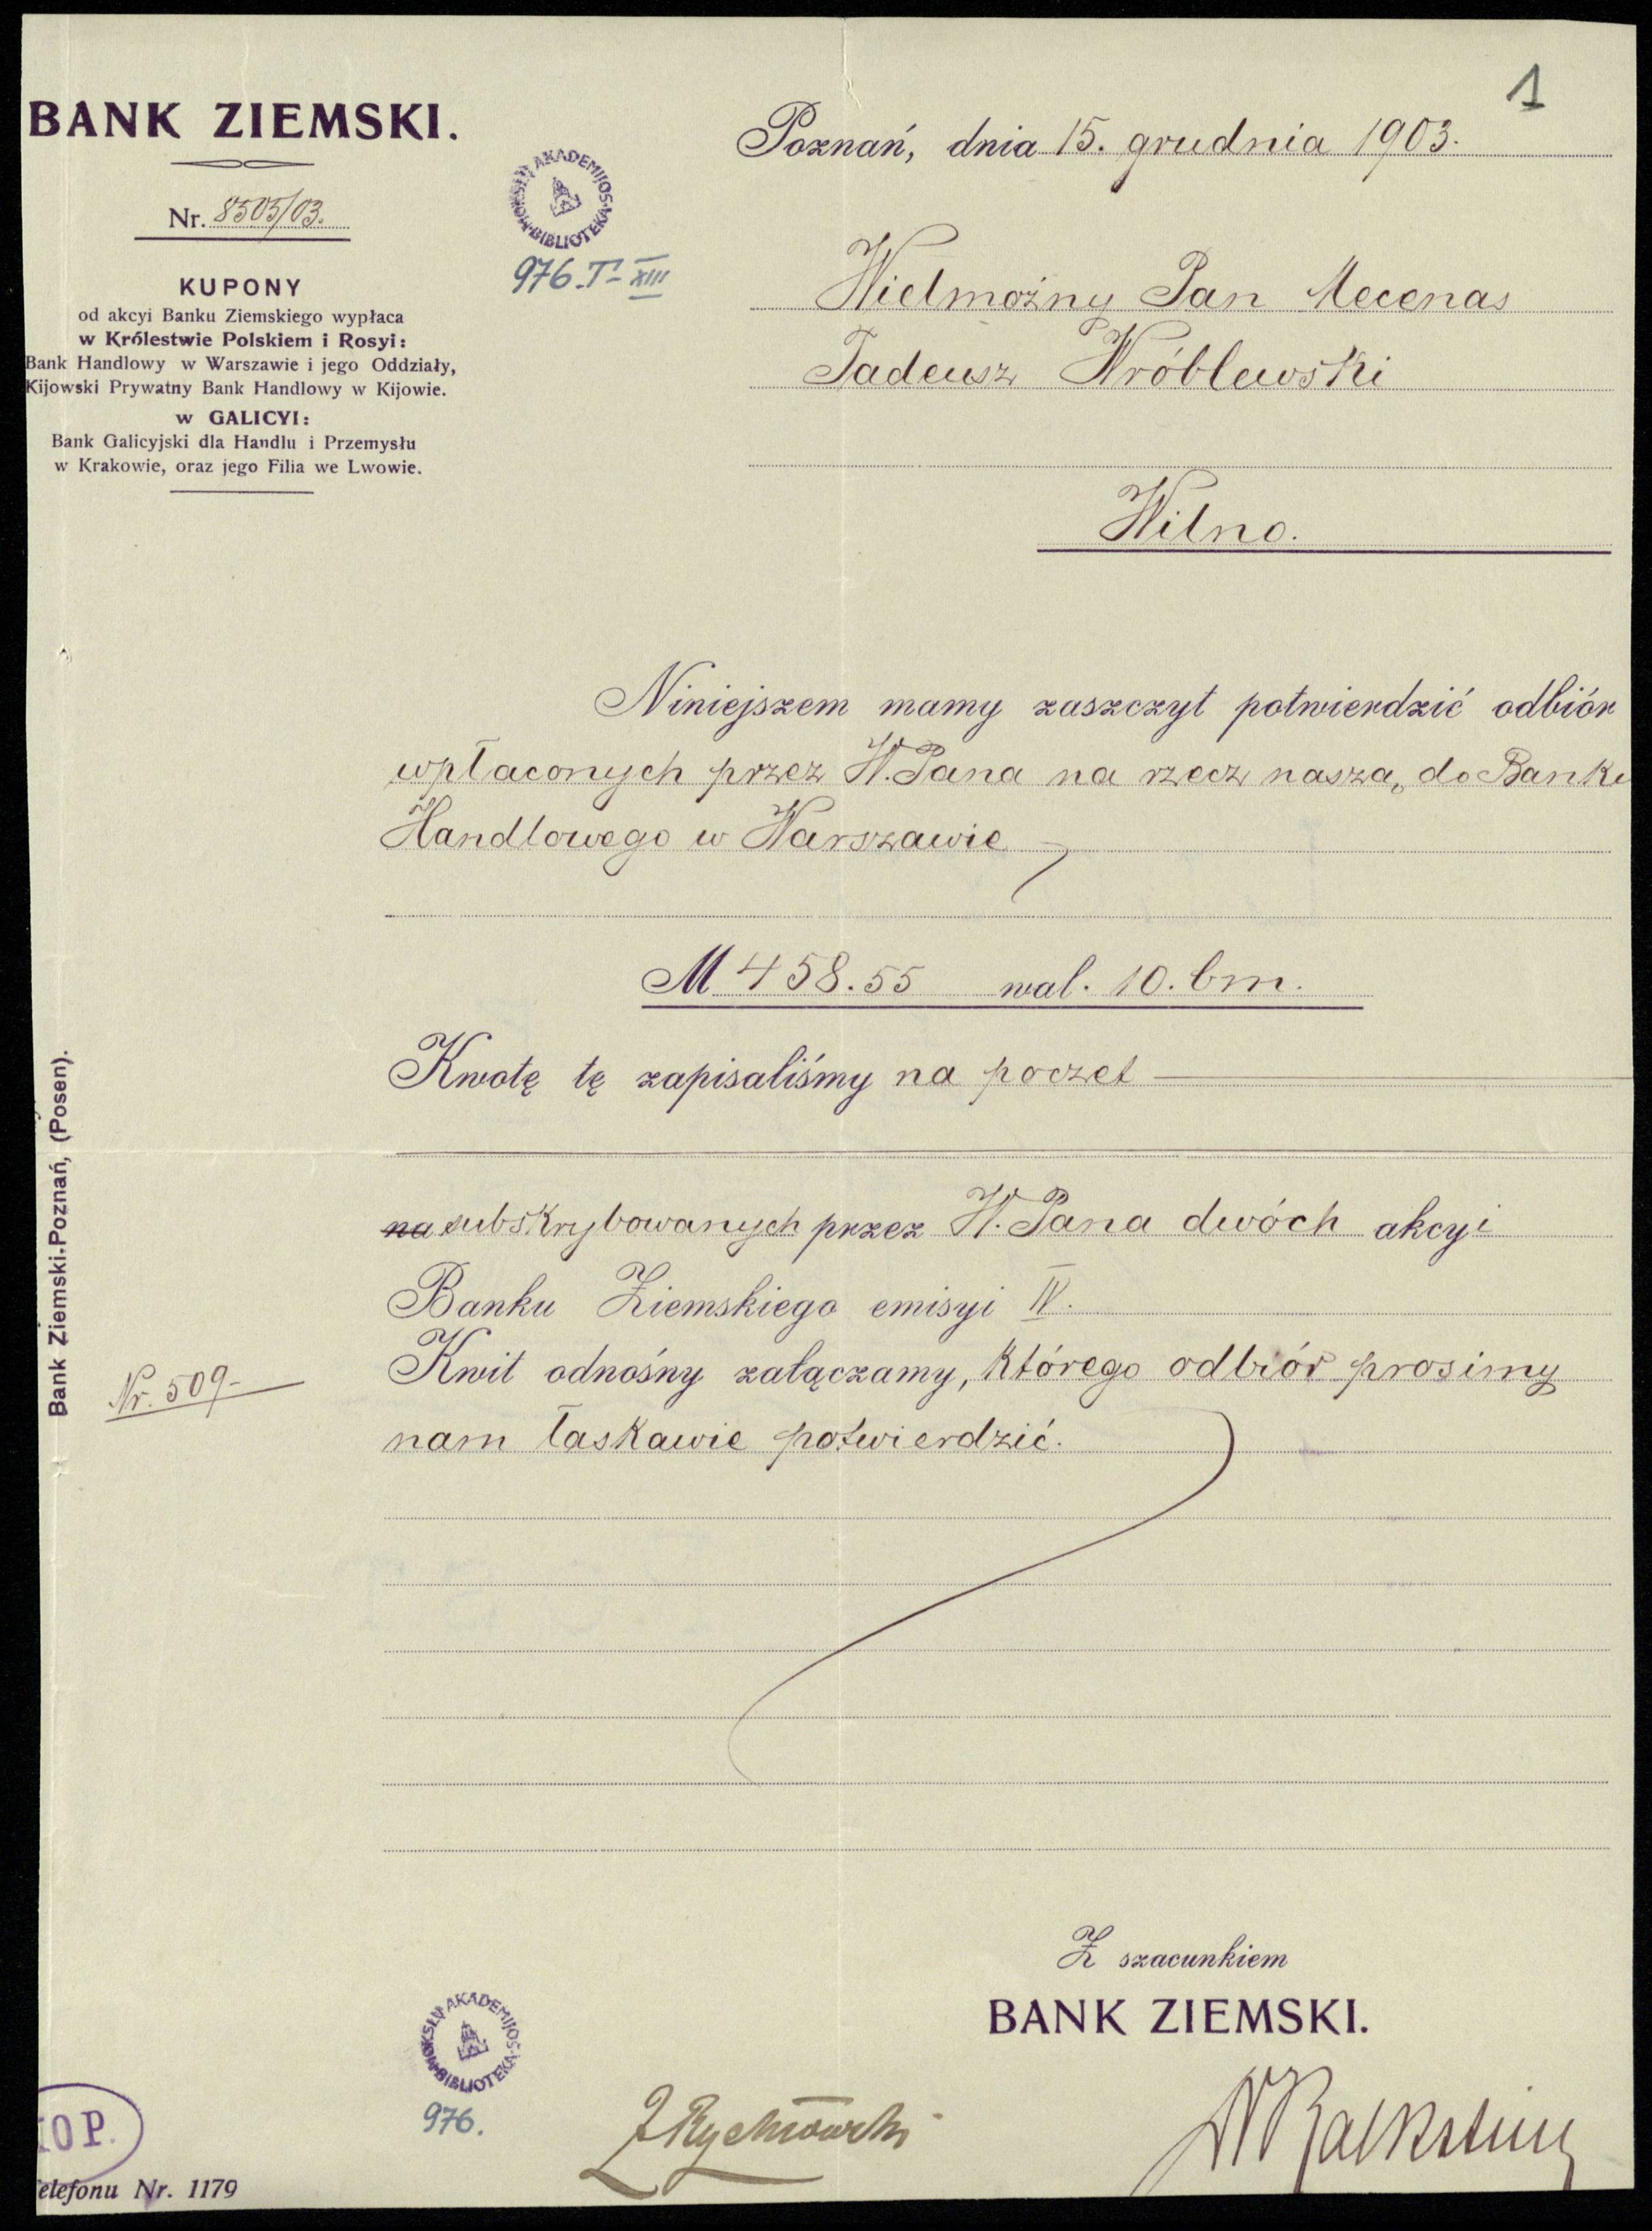 1
BANK ZIEMSKI.
Poznań, dnia 15. grudnia 1903.
Nr. 8505/03.
MOKSLŲ AKADEMIJOS BIBLIOTEKA
976.T-XIII
KUPONY
od akcyi Banku Ziemskiego wypłaca
w Królestwie Polskiem i Rosyi:
Bank Handlowy w Warszawie i jego Oddziały,
Kijowski Prywatny Bank Handlowy w Kijowie.
w GALICYI:
Bank Galicyjski dla Handlu i Przemysłu
w Krakowie, oraz jego Filia we Lwowie.
Wielmożny Pan Mecenas
Tadeusz Wróblewski
Wilno.
Niniejszem mamy zaszczyt potwierdzić odbiór
wpłaconych przez W. Pana na rzecz naszą, do Banku
Handlowego w Warszawie
M 458.55 wal. 10. bm.
Kwotę tę zapisaliśmy na poczet
na subskrybowanych przez W. Pana dwóch akcyi
Banku Ziemskiego emisyi IV.
Kwit odnośny załączamy, którego odbiór prosimy
nam łaskawie potwierdzić.
Nr. 509-
Bank Ziemski-Poznań, (Posen).
Z szacunkiem
BANK ZIEMSKI.
MOKSLŲ AKADEMIJOS BIBLIOTEKA
976.
Z Rychłowski
10 P.
elefonu Nr. 1179